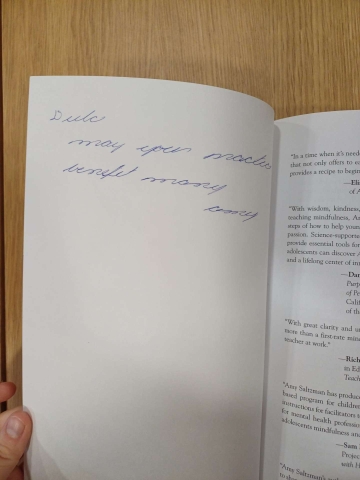 may your practice
benefit many
amy
"In a time when it's neede
that not only offers to e
provides a recipe to begin
—Eli
of A
"With wisdom, kindness,
teaching mindfulness, A
steps of how to help your
passion. Science-supporte
provide essential tools for
adolescents can discover
and a lifelong center of inn
—Dan
Purp
of Pe
Calif
of th
"With great clarity and
more than a first-rate mind
teacher at work."
—Rich
in Ed
Teach
"Amy Saltzman has produce
based program for children
instructions for facilitators to
for mental health profession
adolescents mindfulness and
—Sam
Projec
with H
"Amy Saltzman's